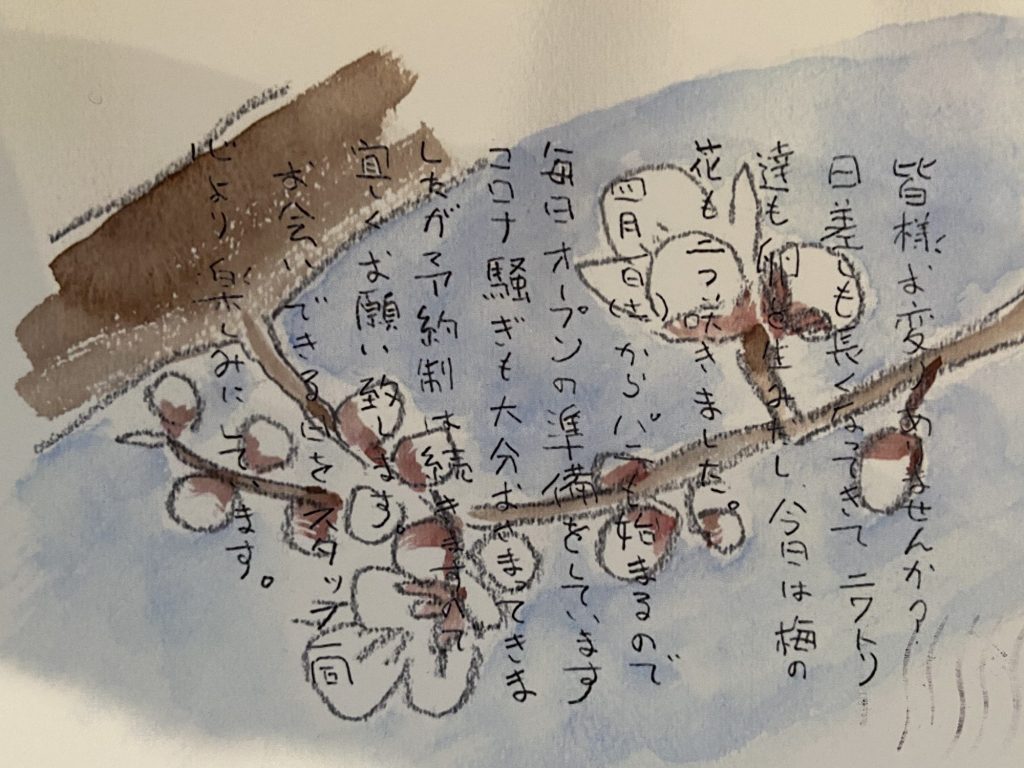 皆様お変りありませんか?
日差しも長くなってきてニワトリ
達も卵を生みだし、今日は梅の
花も二つ咲きました。
四月一日(土)からパンも始まるので
毎日オープンの準備をしています
コロナ騒ぎも大分おさまってきま
したが予約制は続きますので
宜しくお願い致します。
お会いできる日をスタッフ一同
心より楽しみにしています。